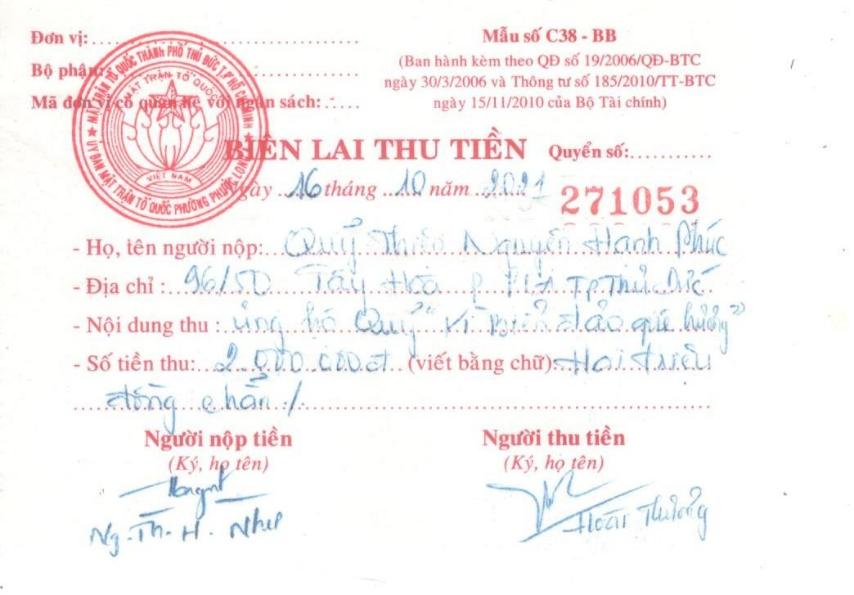 Đơn vị:
Mẫu số C38 - BB
Bộ phận:
(Ban hành kèm theo QĐ số 19/2006/QĐ-BTC
ngày 30/3/2006 và Thông tư số 185/2010/TT-BTC
Mã đơn vị có quan hệ với ngân sách:
ngày 15/11/2010 của Bộ Tài chính)
ỦY BAN MẶT TRẬN TỔ QUỐC PHƯỜNG PHƯỚC LONG
MẶT TRẬN TỔ QUỐC THÀNH PHỐ THỦ ĐỨC T.P HỒ CHÍ MINH
MẶT TRẬN TỔ QUỐC
VIỆT NAM
BIÊN LAI THU TIỀN Quyển số:
Ngày 16 tháng 10 năm 2021
271053
- Họ, tên người nộp: Quỹ Thiện Nguyện Hạnh Phúc
- Địa chỉ : 96/5D Tây Hoà P. TP Thủ Đức
- Nội dung thu : ủng hộ Quỹ "Vì Biển đảo quê hương"
- Số tiền thu: 2.000.000đ (viết bằng chữ): Hai triệu
đồng chẵn /
Người nộp tiền
Người thu tiền
(Ký, họ tên)
(Ký, họ tên)
Ng. Th. H.
Hoài Thương